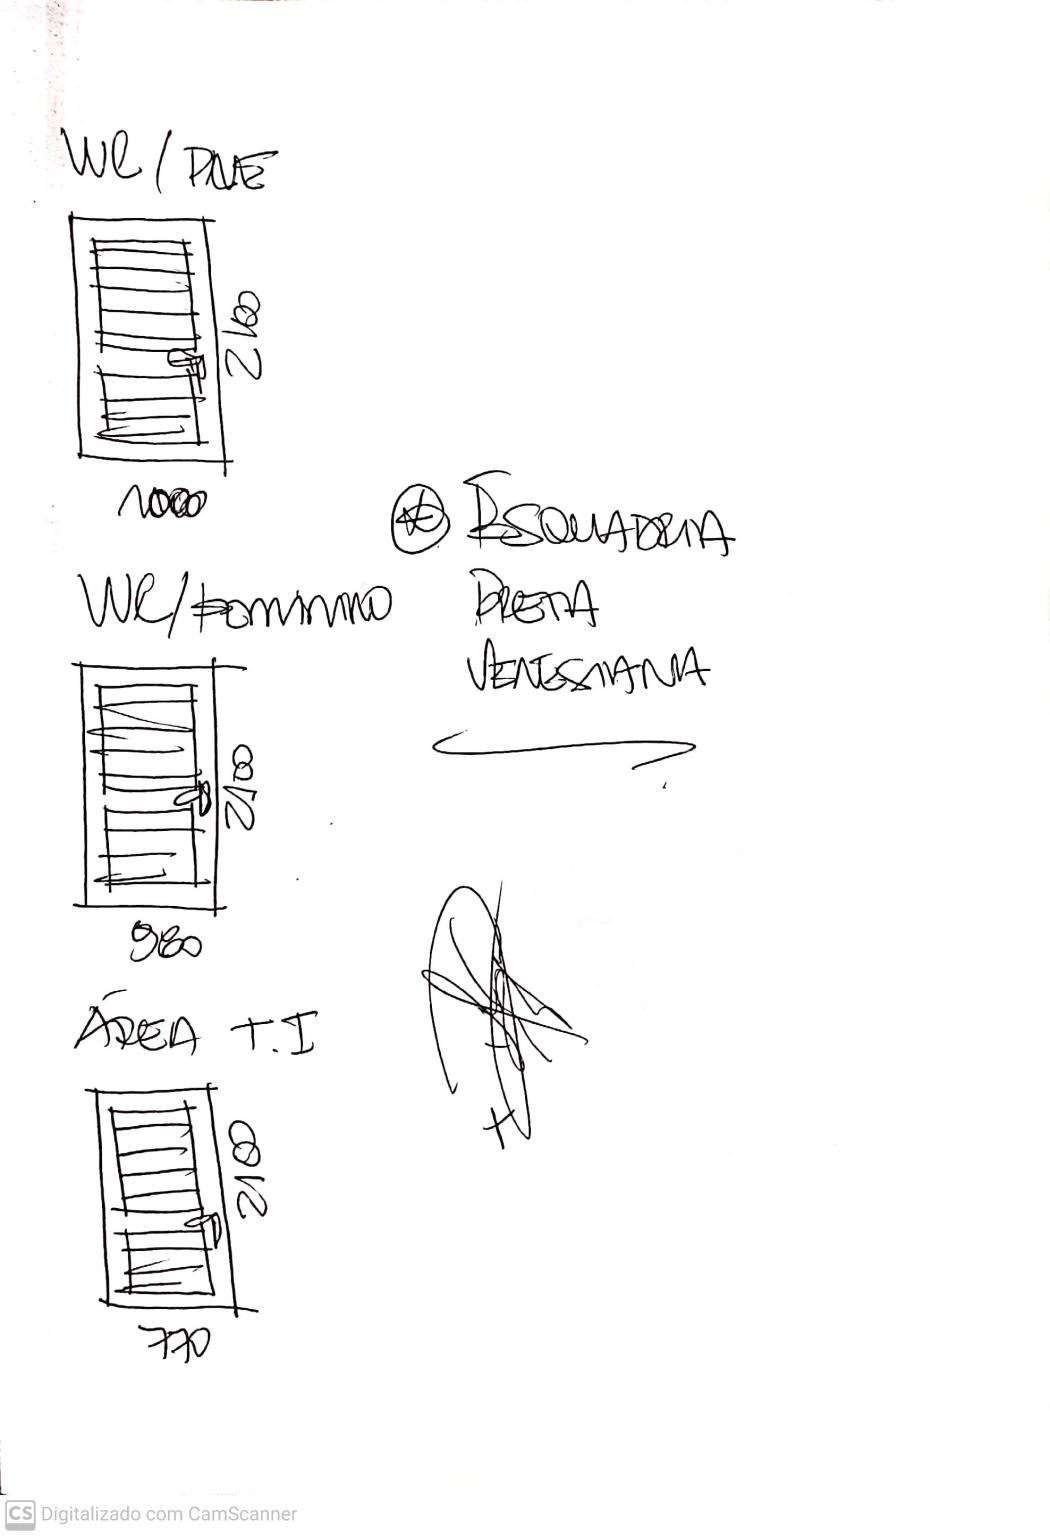 WC / PNE
2100
1000
WC/FEMININO
2100
980
ÁREA T.I
2100
770
ESQUADRIA
PRETA
VENESIANA
CS Digitalizado com CamScanner